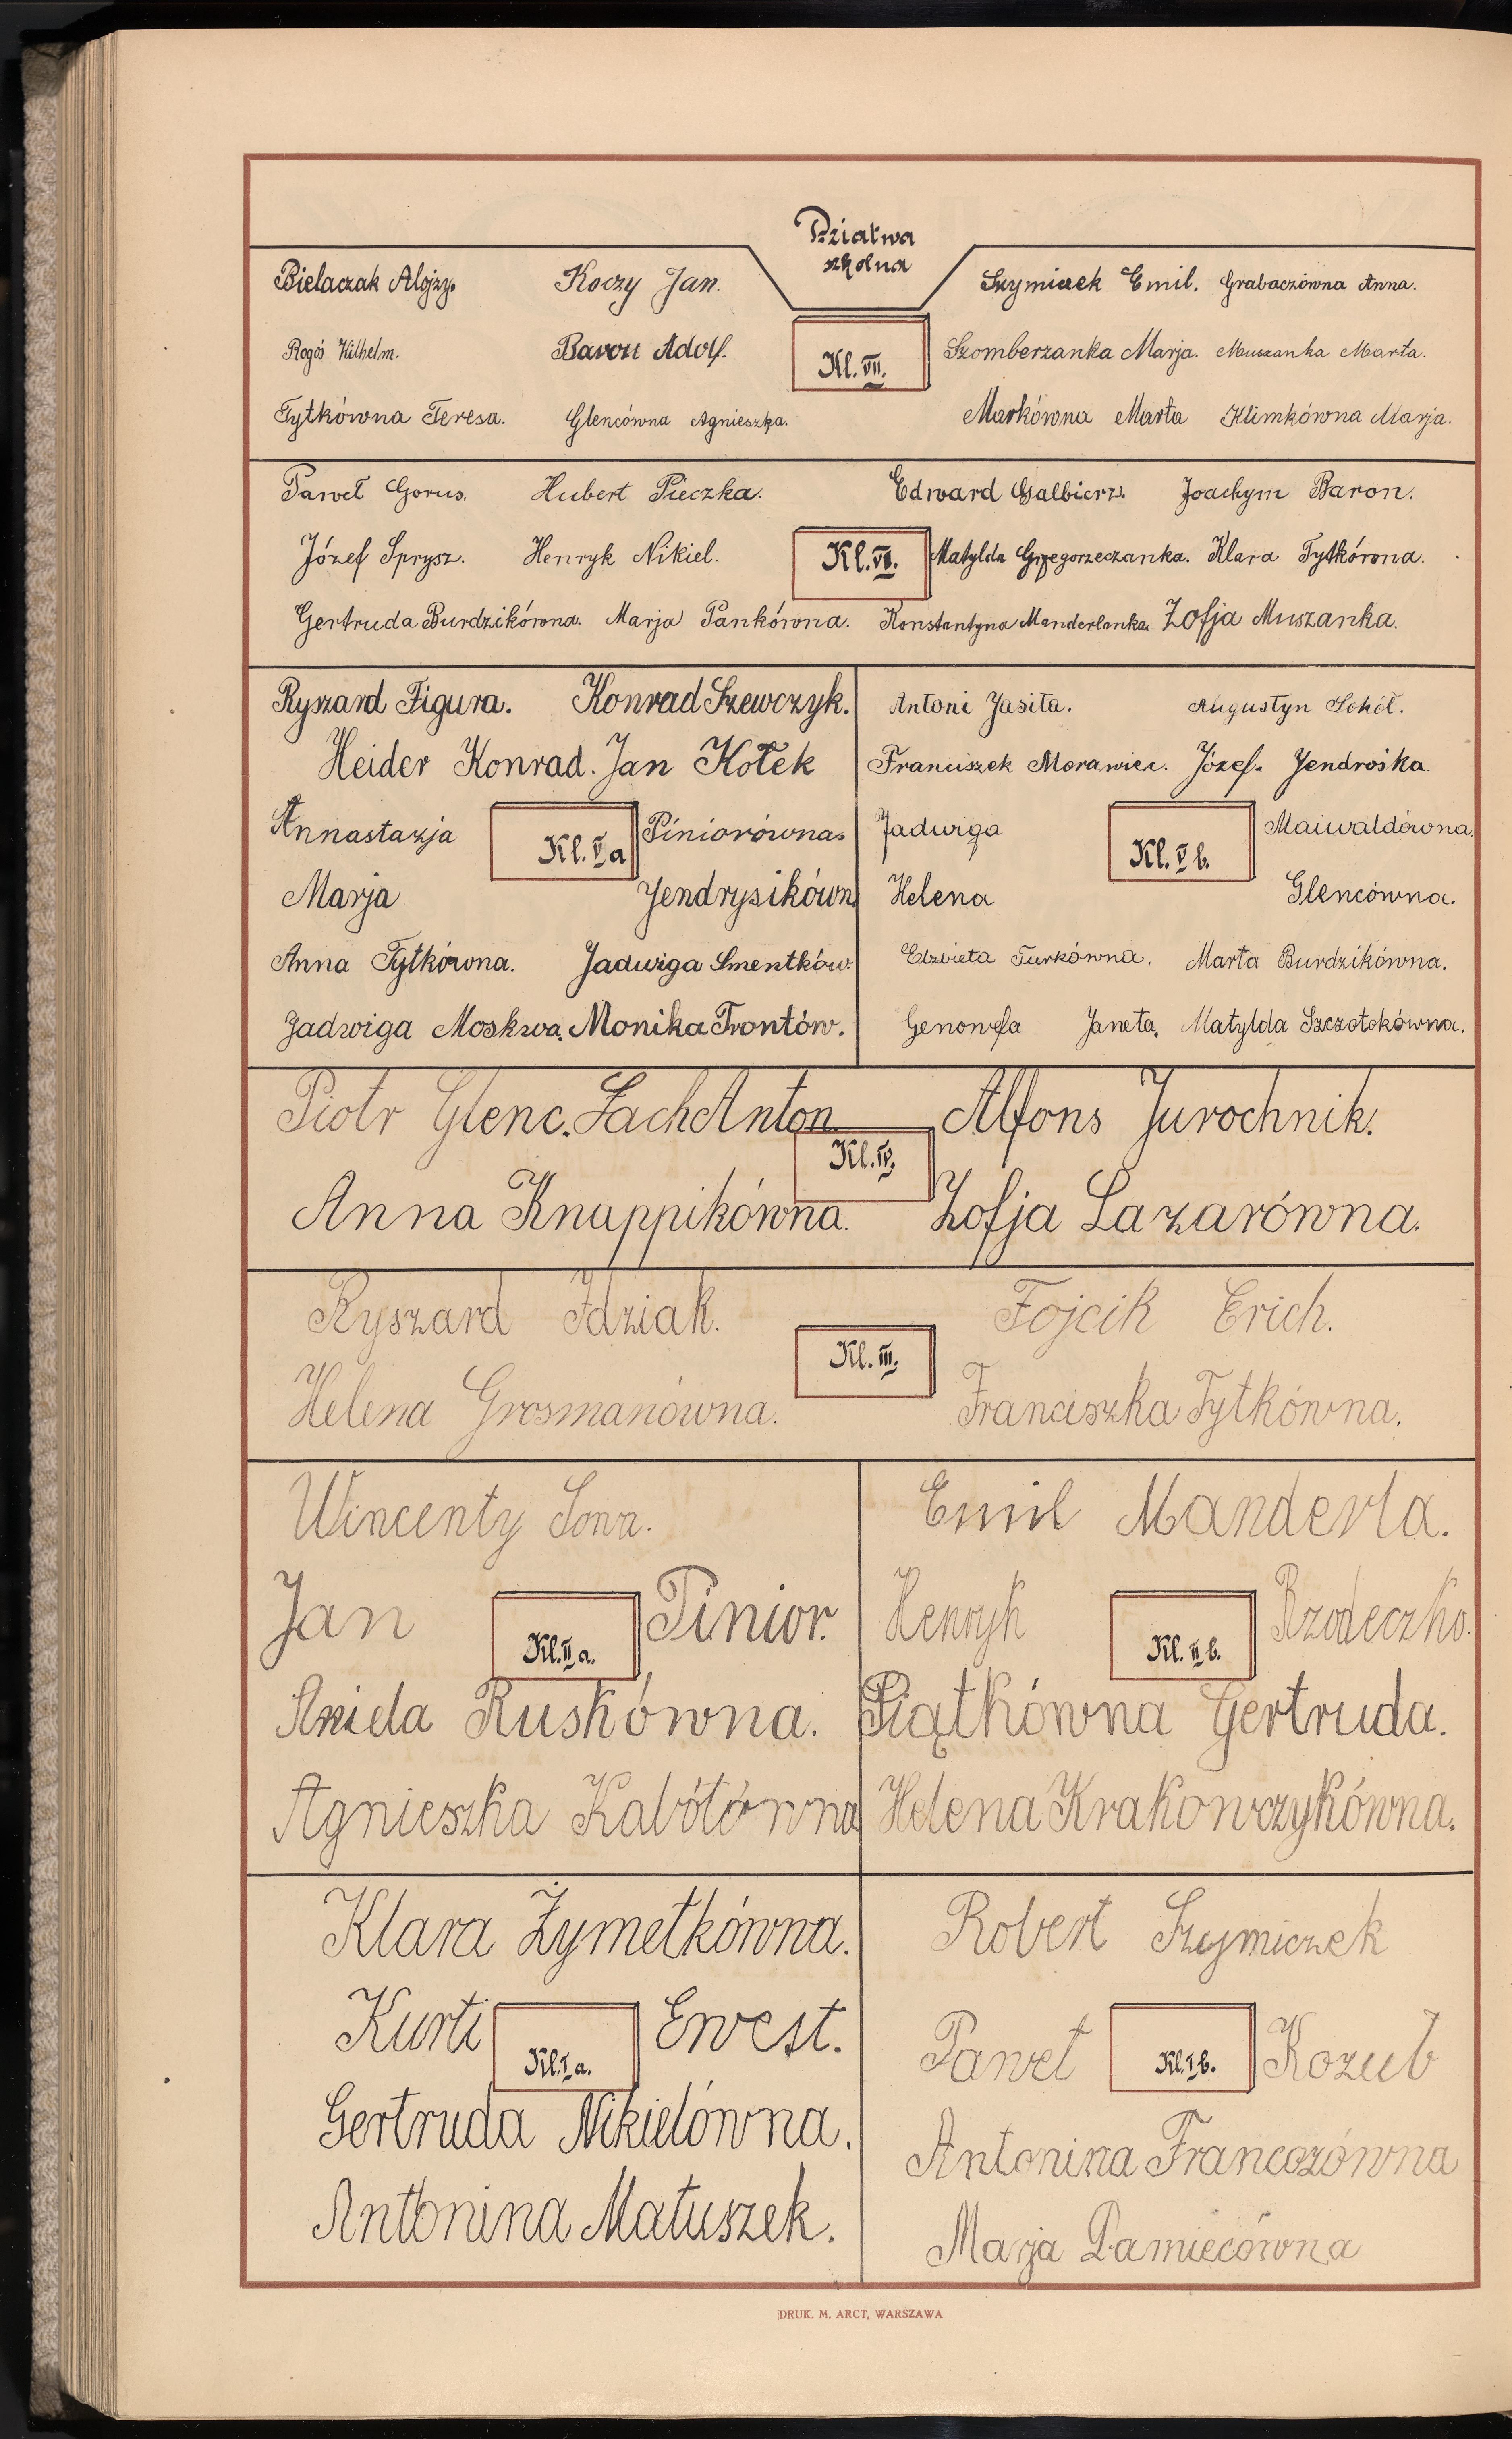 Dziatwa
szkolna
Bielaczak Alojzy. Koczy Jan. Szymiczek Emil. Grabaczówna Anna.
Rogós Wilhelm. Baron Adolf. Kl. VII. Szomberzanka Marja. Muszanka Marta.
Tytkówna Teresa. Glencówna Agnieszka. Markówna Marta Klimkówna Marja.
Paweł Gorus. Hubert Pieczka. Edward Galbierz. Joachym Baron.
Józef Sprysz. Henryk Nikiel. Kl. VI. Matylda Grzegorzeczanka. Klara Tytkówna.
Gertruda Burdzikówna. Marja Pankówna. Konstantyna Manderlanka. Zofja Muszanka.
Ryszard Figura. Konrad Szewczyk.
Heider Konrad. Jan Kołek
Annastazja Kl. V a Piniorówna.
Marja Jendrysikówn
Anna Tytkówna. Jadwiga Smentków.
Jadwiga Moskwa. Monika Trontów.
Antoni Jasita. Augustyn Sokół.
Franciszek Morawiec. Józef. Jendrośka.
Jadwiga Kl. V b. Maiwaldówna.
Helena Glencówna.
Elzbieta Turkówna. Marta Burdzikówna.
Genowefa Janeta. Matylda Szczotokówna.
Piotr Glenc. Lach Anton Alfons Jurochnik.
Kl. IV.
Anna Knappikówna. Zofja Lazarówna.
Ryszard Idziak. Fojcik Erich.
Kl. III.
Helena Grosmanówna. Franciszka Tytkówna.
Wincenty Sowa.
Jan Kl. II a. Pinior.
Aniela Ruskówna.
Agnieszka Kabótówna
Emil Manderla.
Henryk Kl. II b. Rzodeczko.
Piątkówna Gertruda.
Helena Krakowczykówna.
Klara Żymetkówna.
Kurti Kl. I a. Ewest.
Gertruda Nikielówna.
Antonina Matuszek.
Robert Szymiczek
Paweł Kl. I b. Kozub
Antonina Francozówna
Marja Damiecówna
DRUK. M. ARCT, WARSZAWA